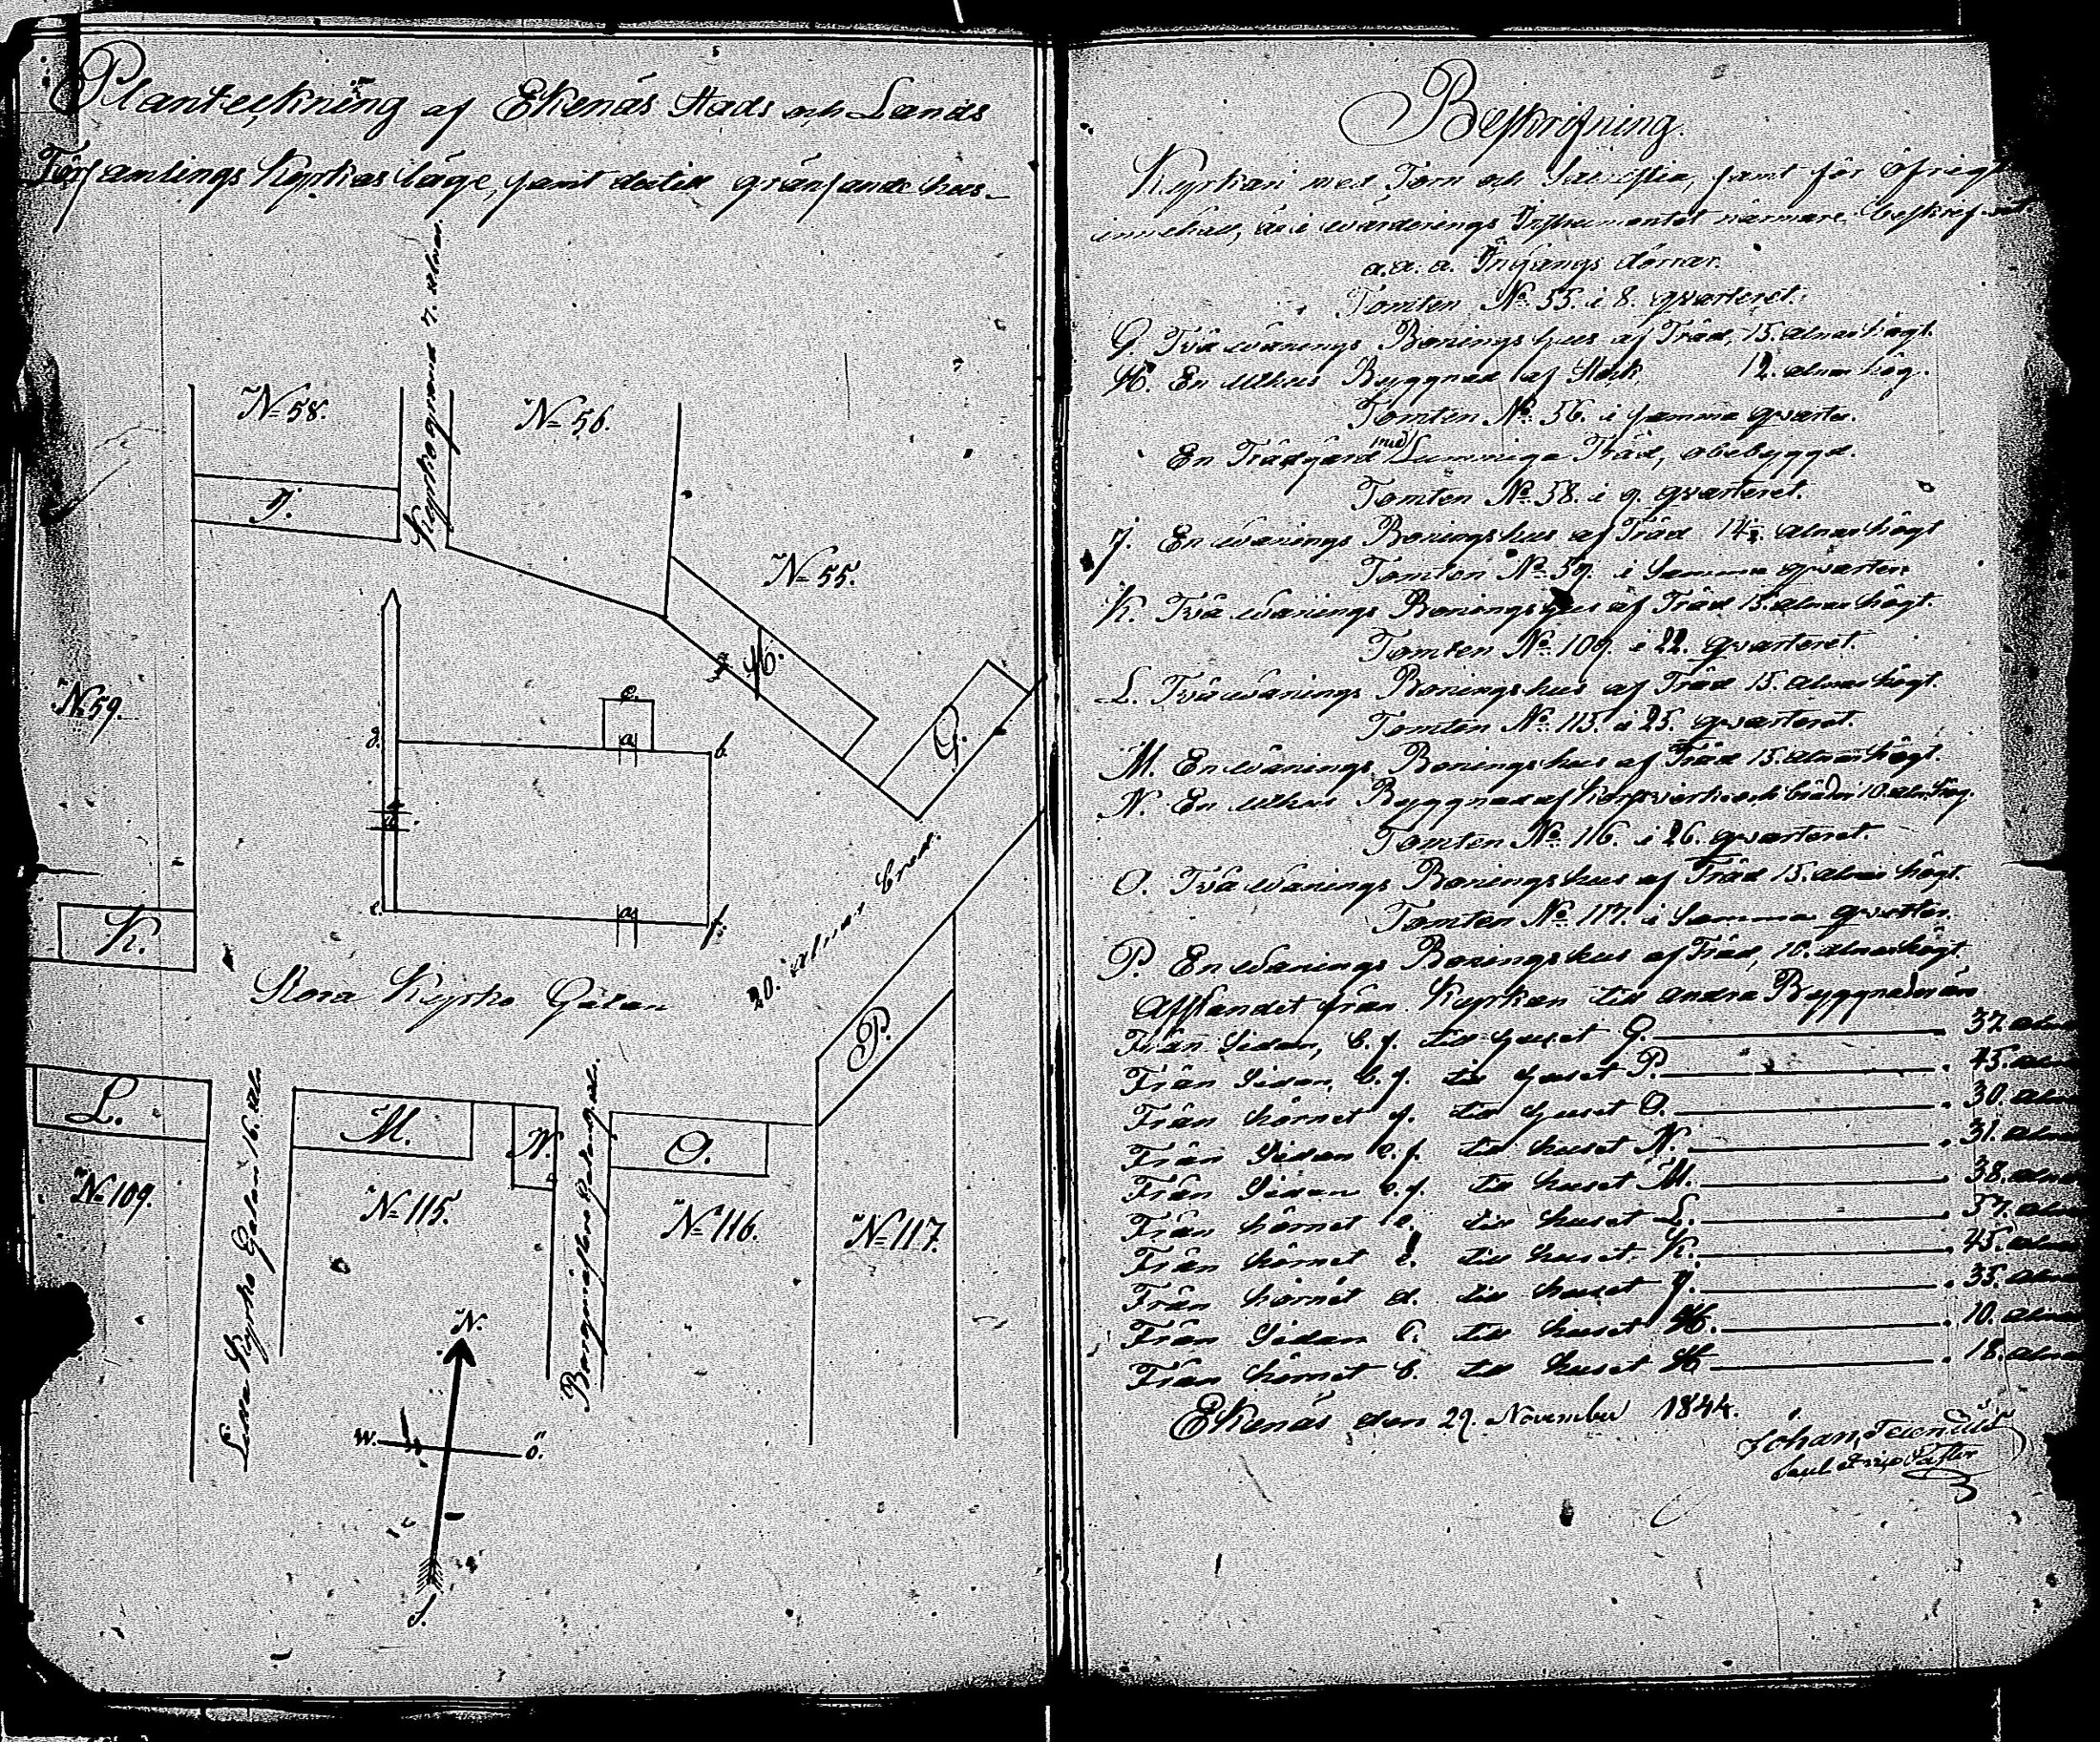 Planteckning af Ekenäs Stads och Lands
Församlings Kyrkas läge, samt dertill gränsande hus.
Kyrkogränd 7. alnar.
No 58.
No 56.
J.
No 55.
H.
No 59.
c.
G.
d.
a
b.
a.
20. alnar bred.
K.
e.
a
f.
Stora Kyrko Gatan
P.
L.
M.
N.
O.
No 109.
Lilla Kyrko Gatan 16. al.
No 115.
No 116.
No 117.
N.
W.
Ö.
S.
Beskrifning.
Kyrkan med Torn och Sacristia, samt för öfrigt
innehåll, är i wärderings Instrumentet närmare beskrifvet
a. a. a. Ingångs dörrar.
Tomten No 55. i 8. qvarteret.
G. Två wånings Bonings hus af Träd, 15. alnar högt.
H. En uthus Byggnad af Stock, 12. alnar hög.
Tomten No 56. i samma qvarter.
En Trädgård med Lummiga Träd, obebyggd.
Tomten No 58. i 9. qvarteret.
J. En wånings Boningshus af Träd 14. alnar högt
Tomten No 59. i Samma qvarter.
K. Två wånings Bonings hus af Träd 15. alnar högt.
Tomten No 109. i 22. qvarteret.
L. Två wånings Bonings hus af Träd 15. alnar högt.
Tomten No 115. i 25. qvarteret.
M. En wånings Bonings hus af Träd 15. alnar högt.
N. En uthus Byggnad af Korsvirke och bräder 10. aln. hög.
Tomten No 116. i 26. qvarteret.
O. Två wånings Bonings hus af Träd 15. alnar högt.
Tomten No 117. i Samma qvarter.
P. En wånings Bonings hus af Träd, 10. alnar högt.
Afståndet från Kyrkan till andra Byggnader
Från Sidan, b. f. till huset G. 37. aln
Från Sidan, b. f. till huset P. 45. aln
Från hörnet f. till huset O. 30. aln
Från Sidan e. f. till huset N. 31. aln
Från Sidan e. f. till huset M. 38. aln
Från hörnet e. till huset L. 57. aln
Från hörnet e. till huset K. 45. aln
Från hörnet d. till huset J. 35. aln
Från Sidan c. till huset H. 10. aln
Från hörnet b. till huset H 18. aln
Ekenäs den 29. November 1844.
Johan